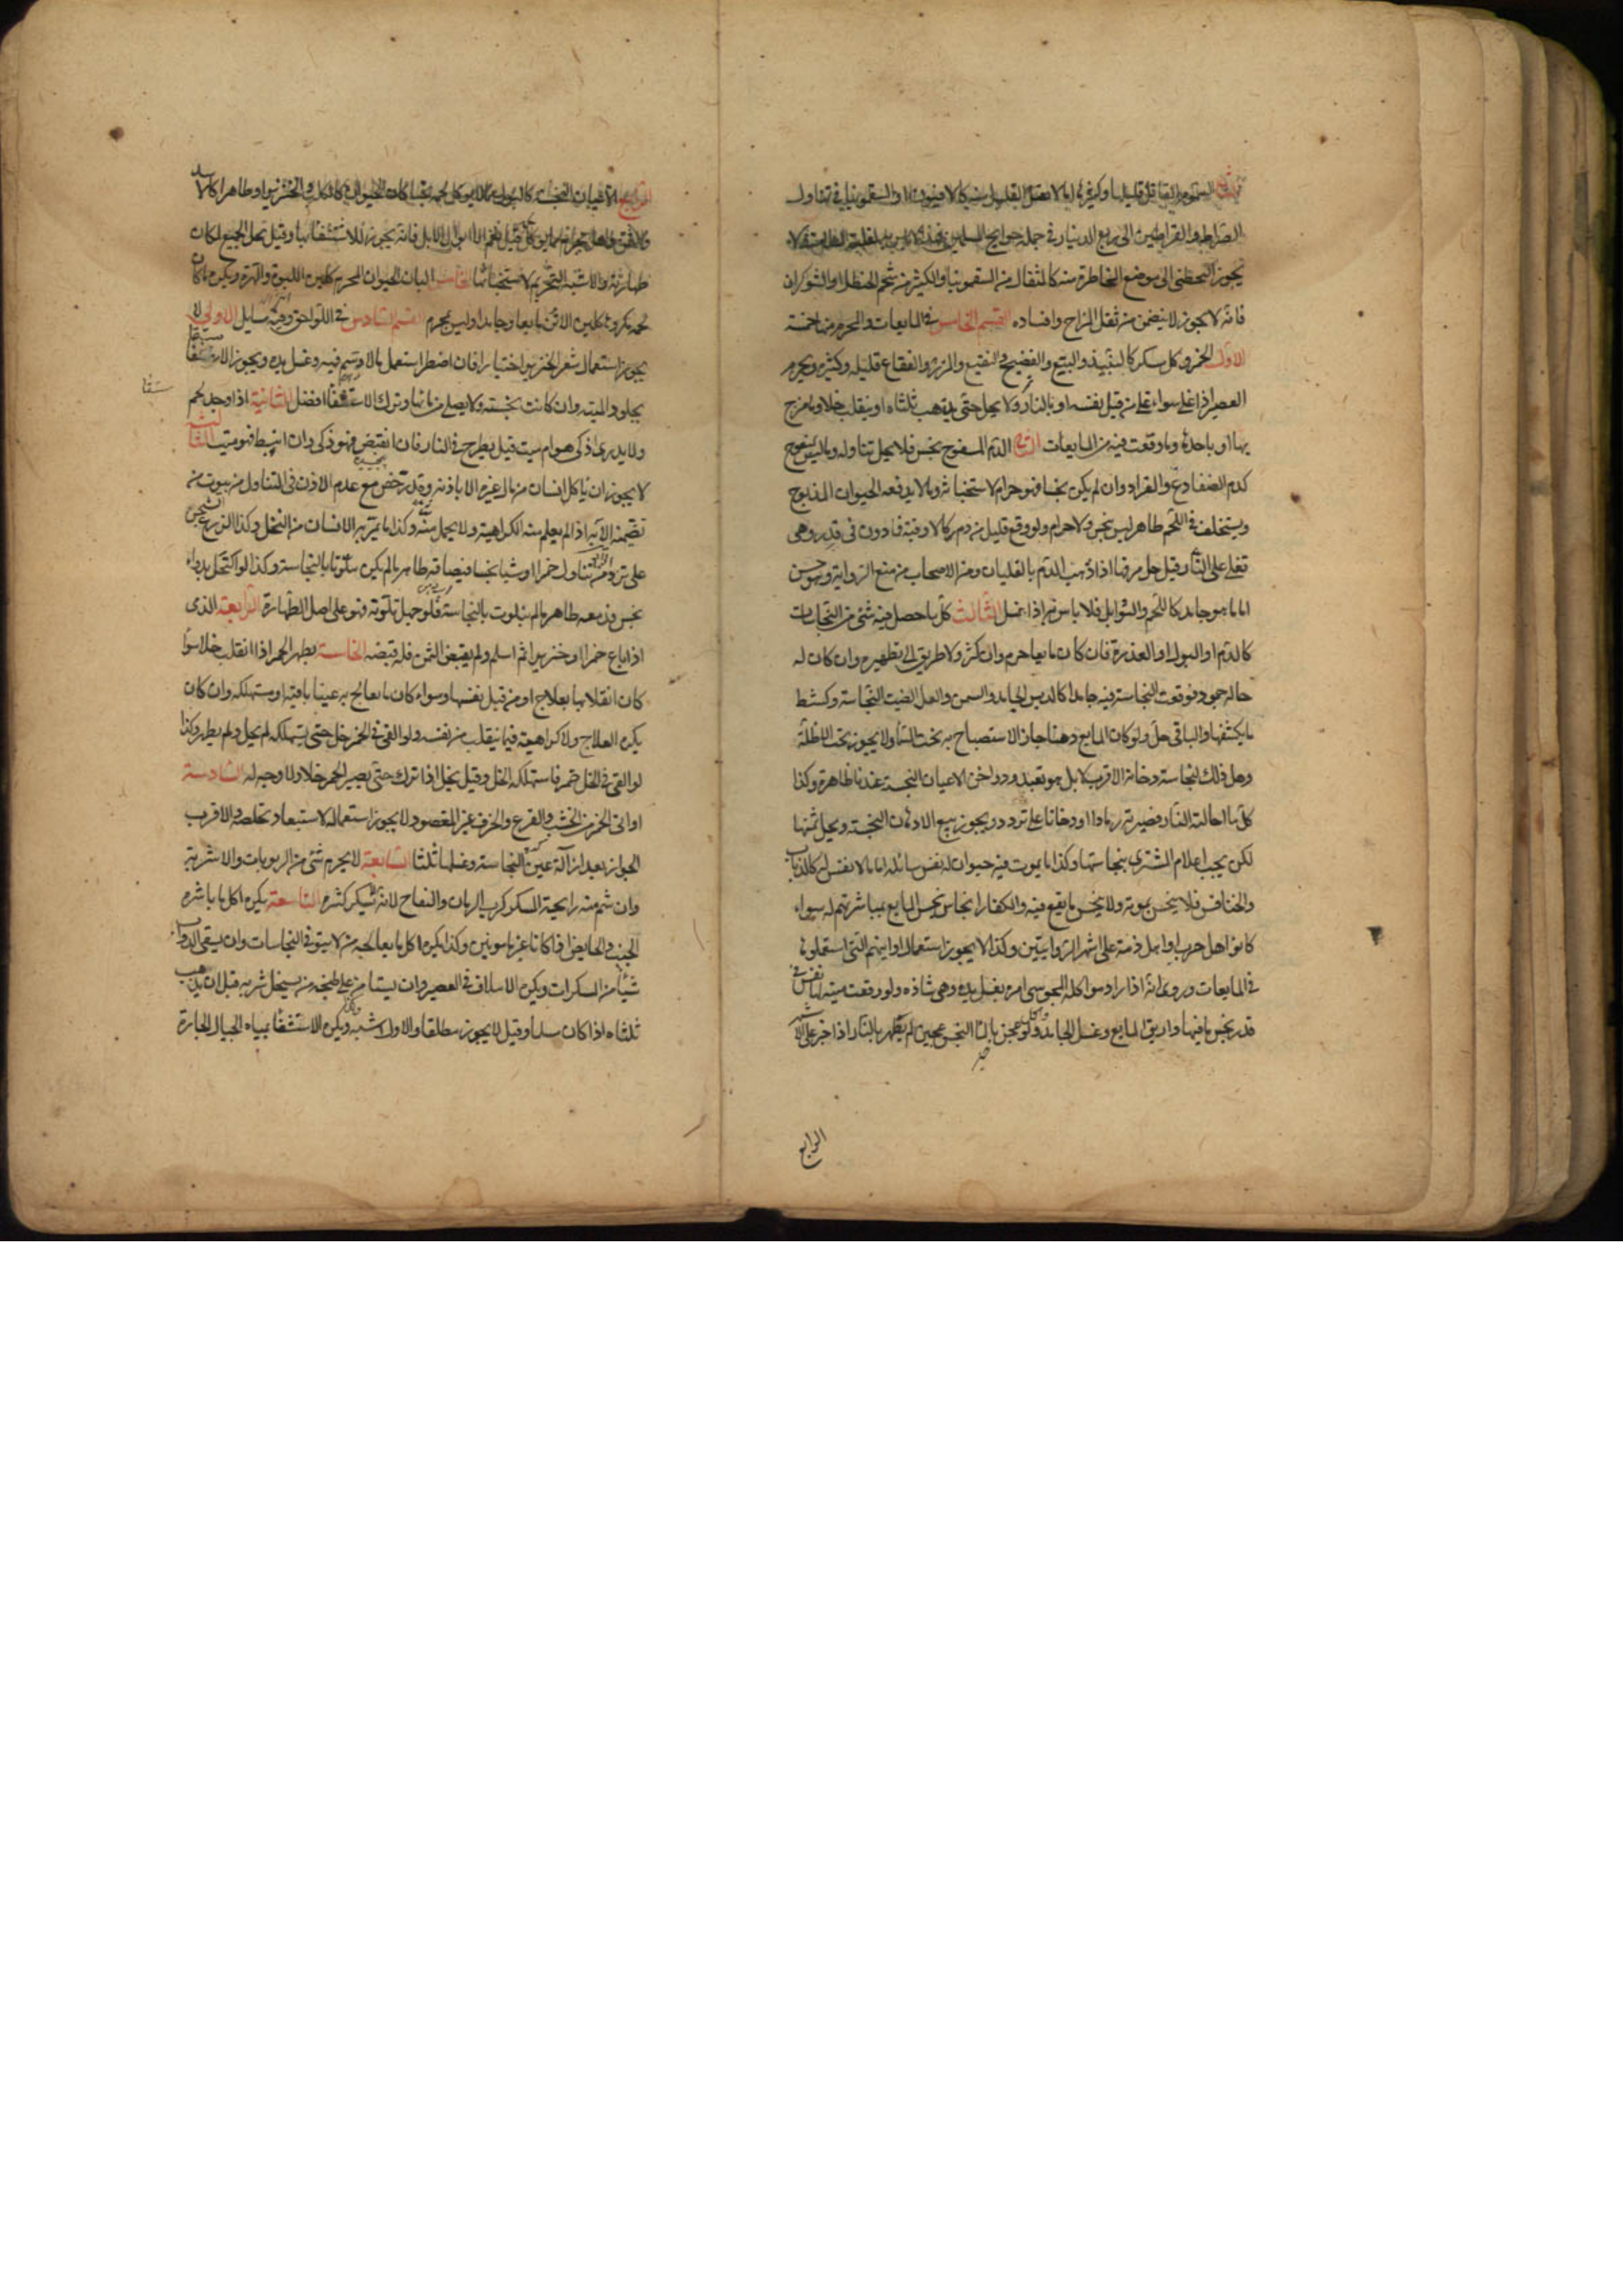 السموم القاتل قليلها وكثيرها اما ما لا يقتل القليل منه كالافيون او السقمونيا في تناول
القيراط والقيراطين الى ربع الدينار في جملة حوايج المسلمين فهذا لا باس به لغلبة الظن بالسلامة ولا
يجوز التخطى الى موضع المخاطرة منه كالمثقال من السقمونيا والكثير من شحم الحنظل او الشوكران
فانه لا يجوز لا يتضمن من ثقل المزاج وافساده القسم الخامس في المايعات والمحرم منها خمسة
الاول الخمر وكل مسكر كالنبيذ والبتع والفضيخ والنقيع والمزر والفقاع قليله وكثيره ويحرم
العصير اذا غلى سواء غلى من قبل نفسه او بالنار ولا يحل حتى يذهب ثلثاه او ينقلب خلا وما مزج
بها او باحدها وما وقعت فيه من المايعات الدم المسفوح نجس فلا يحل تناوله وما ليس بمسفوح
كدم الضفادع والقراد وان لم يكن نجسا فهو حرام لاستخباثه وما لا يدفعه الحيوان المذبوح
ويستخلف في اللحم طاهر ليس بنجس ولا حرام ولو وقع قليل من دم كالاوقية فما دون في قدر وهى
تغلى على النار قيل حل مرقها اذا ذهب الدم بالغليان ومن الاصحاب من منع الرواية وهو حسن
اما ما هو جامد كاللحم والتوابل فلا باس به اذا غسل الثالث كل ما حصل فيه شئ من النجاسات
كالدم او البول او العذرة فان كان مايعا حرم وان كثر ولا طريق الى تطهيره وان كان له
حالة جمود فوقعت النجاسة فيه جامدا كالدبس الجامد والسمن والعسل القيت النجاسة وكشط
ما يكتنفها والباقى حل ولو كان المايع دهنا جاز الاستصباح به تحت السماء ولا يجوز تحت الاظلة
وهل ذلك لنجاسة دخانه الاقرب لا بل هو تعبد ودواخن الاعيان النجسة عندنا طاهرة وكذا
كل ما احالته النار فصيرته رمادا او دخانا على تردد ويجوز بيع الادهان النجسة ويحل ثمنها
لكن يجب اعلام المشترى بنجاستها وكذا ما يموت فيه حيوان له نفس سائلة اما ما لا نفس له كالذباب
والخنافس فلا ينجس بموته ولا ينجس ما يقع فيه والكفار انجاس ينجس المايع بمباشرتهم له سواء
كانوا اهل حرب او اهل ذمة على اشهر الروايتين وكذا لا يجوز استعمال اوانيهم التى استعملوها
في المايعات وروى انه اذا اراد مواكلة المجوسى امره بغسل يده وهى شاذه ولو وقعت ميتة لها نفس في
قدر نجس ما فيها واريق المايع وغسل الجامد واكل ولو عجن بالماء النجس عجين لم يطهر بالنار اذا خبز على الاشهر
الرابع
الرابع الاعيان النجسة كالبول مما لا يوكل لحمه نجسا كان الحيوان كالكلب والخنزير او طاهرا كالاسد
طهارته والاشبه التحريم لاستخباثها الخامس البان الحيوان المحرم كلبن اللبوة والهرة ويكره ما كان
لحمه مكروها كلبن الاتن مايعا وجامدا وليس بمحرم القسم السادس في اللواحق وفيه مسايل الاولى لا
يجوز استعمال شعر الخنزير اختيارا فان اضطر استعمل ما لا دسم فيه وغسل يده ويجوز الاستقاء
بجلود الميتة وان كانت نجسة ولا يصلى من مائها وترك الاستقاء افضل الثانية اذا وجد لحم
ولا يدرى اذكى هو ام ميت قيل يطرح في النار فان انقبض فهو ذكى وان انبسط فهو ميت الثالثة
لا يجوز ان ياكل انسان من مال غيره الا باذنه وقد رخص مع عدم الاذن في التناول من بيوت من
تضمنته الآية اذا لم يعلم منه الكراهية ولا يحمل منه وكذا ما يمر به الانسان من النخل وكذا الزرع والشجر
على تردد من تناول خمرا او شيا نجسا فبصاقه طاهر ما لم يكن متلوثا بالنجاسة وكذا لو اكتحل بدواء
نجس فدمعه طاهر ما لم يتلوث بالنجاسة فلو جهل تلوثه فهو على اصل الطهارة الرابعة الذمى
اذا باع خمرا او خنزيرا ثم اسلم ولم يقبض الثمن فله قبضه الخامسة يطهر الخمر اذا انقلب خلا سواء
كان انقلابها بعلاج او من قبل نفسها وسواء كان ما يعالج به عينا باقية او مستهلكة وان كان
يكره العلاج ولا كراهية فيما ينقلب من نفسه ولو القى في الخمر خل حتى يستهلكه لم يحل ولم يطهر وكذا
لو القى في الخل خمر فاستهلكه الخل وقيل يحل اذا ترك حتى يصير الخمر خلا ولا وجه له السادسة
اوانى الخمر من الخشب والقرع والخزف غير المغضور لا يجوز استعماله لاستبعاد تخلصه والاقرب
الجواز بعد ازالة عين النجاسة وغسلها ثلثا السابعة لا يحرم شئ من الربوبات والاشربة
وان شم منه رايحة المسكر كرب الرمان والتفاح لانه لا يسكر كثيره التاسعة يكره اكل ما باشره
الجنب والحايض اذا كانا غير مامونين وكذا يكره اكل ما يعالجه من لا يتوقى النجاسات وان يسقى الدواب
شيا من المسكرات ويكره الاسلاف في العصير وان يستامن على طبخه من يستحل شربه قبل ان يذهب
ثلثاه اذا كان مسلما وقيل لا يجوز مطلقا والاول اشبه ويكره الاستشفاء بمياه الجبال الحارة